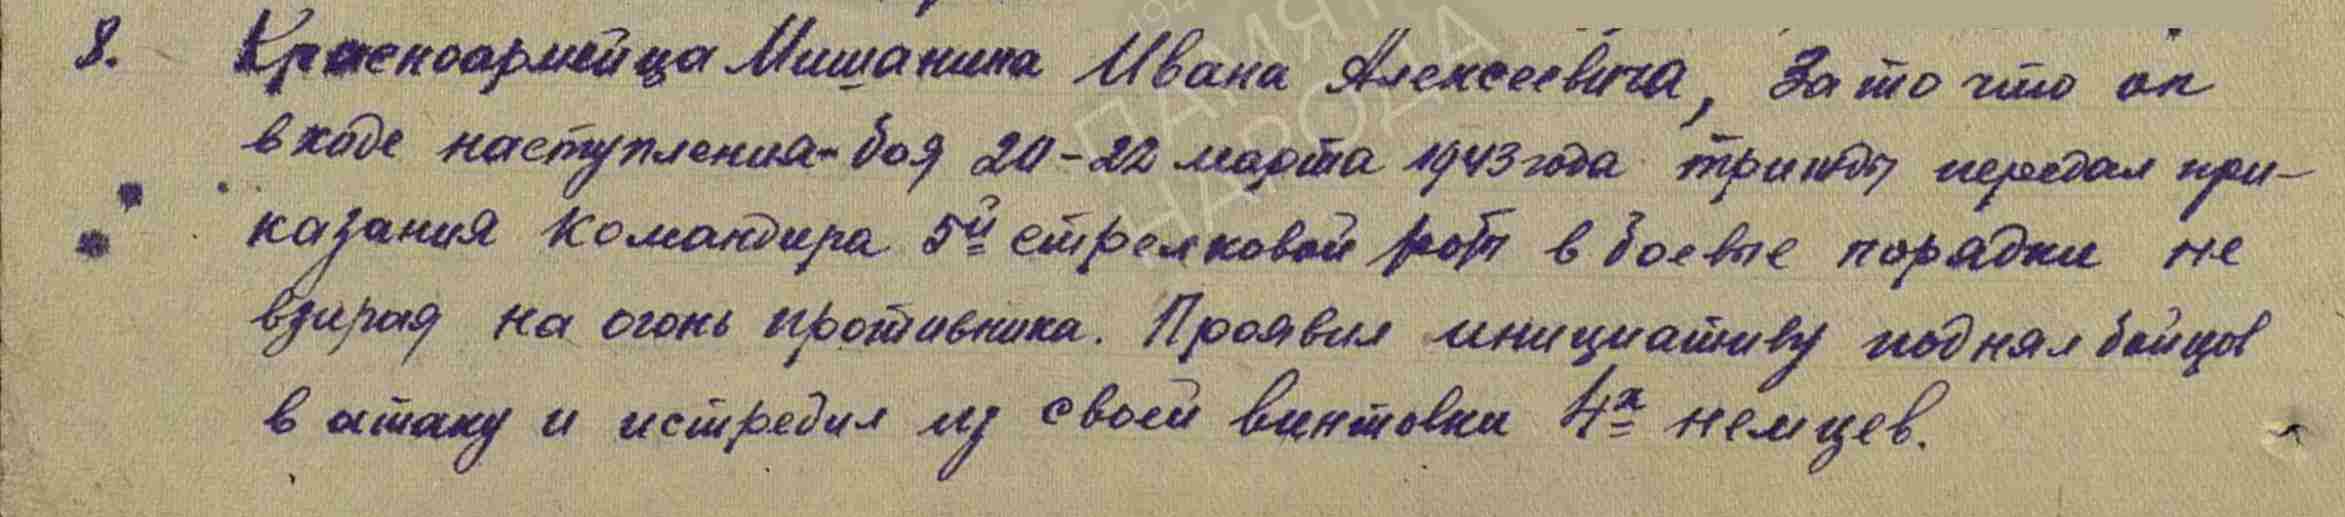 8. Красноармейца Мишанина Ивана Алексеевича, За то что он
в ходе наступления-боя 20-22 марта 1943 года трижды передал при-
казания командира 5й стрелковой рот в боевые порядки не
взирая на огонь противника. Проявил инициативу поднял бойцов
в атаку и истребил из своей винтовки 4х немцев.
ПАМЯТЬ
НАРОДА